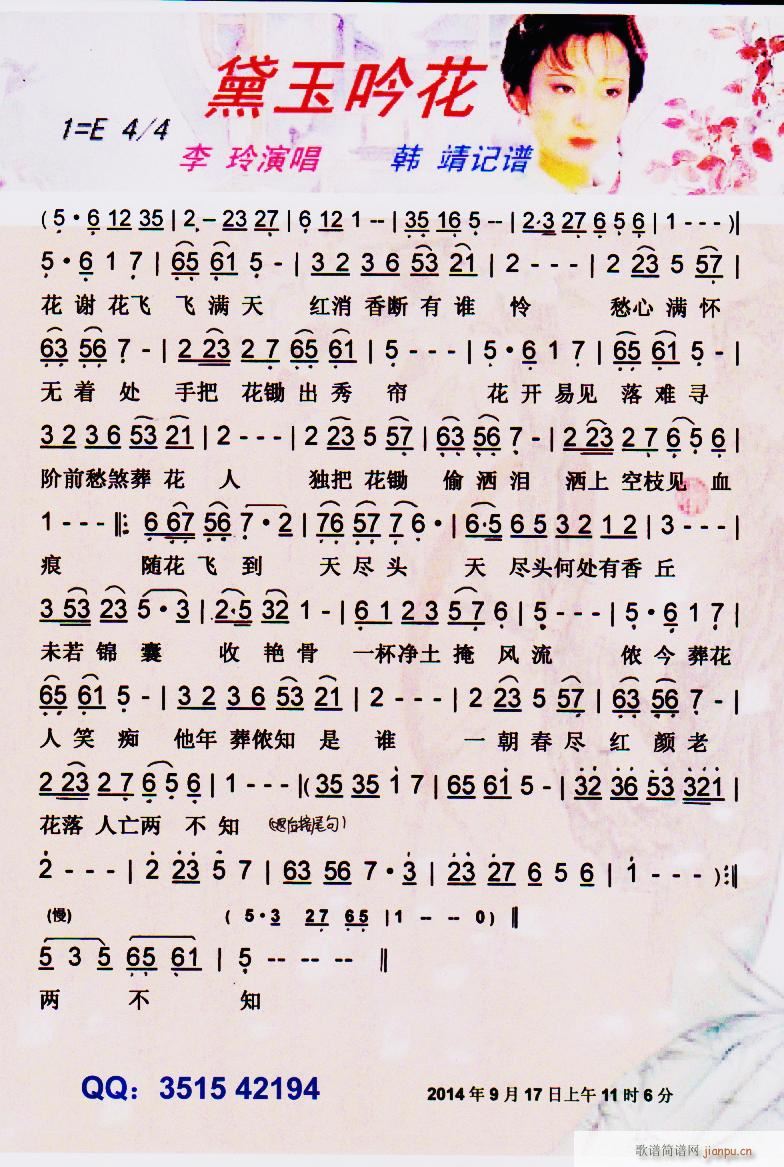 黛玉吟花
1=E 4/4
李 玲演唱 韩 靖记谱
(5·6 12 35|2·-23 27|6 12 1--|35 16 5--|2·3 27 6 5 6|1---)‖
5·6 1 7|65 61 5-|3 2 3 6 53 21|2---|2 23 5 57|
花谢花飞 飞满天 红消香断有谁 怜 愁心满怀
63 56 7-|2 23 2 7 65 61|5---|5·6 1 7|65 61 5-|
无着 处 手把 花锄出秀 帘 花开易见 落难寻
3 2 3 6 53 21|2---|2 23 5 57|63 56 7-|2 23 2 7 6 5 6|
阶前愁煞葬 花 人 独把 花锄 偷洒泪 洒上 空枝见 血
1---‖:6 67 56 7·2|76 57 7 6·|6·5 6 5 3 2 1 2|3---|
痕 随花 飞 到 天尽头 天 尽头何处有香丘
3 53 23 5·3|2·5 32 1-|6 1 2 3 5 7 6|5---|5·6 1 7|
未若 锦 囊 收艳骨 一杯净土掩 风流 侬今葬花
65 61 5-|3 2 3 6 53 21|2---|2 23 5 57|63 56 7-|
人笑痴 他年葬侬知 是 谁 一朝春尽红颜老
2 23 2 7 6 5 6|1---|(35 35 1 7|65 61 5-|32 36 53 321|
花落 人亡两 不知
2---|2 23 5 7|63 56 7·3|23 27 6 5 6|1---):‖
(慢) (5·3 27 65|1 -- -- 0)‖
5 3 5 65 61|5 -- -- --‖
两 不 知
QQ：3515 42194 2014年9月17日上午11时6分
歌谱简谱网
jianpu.cn